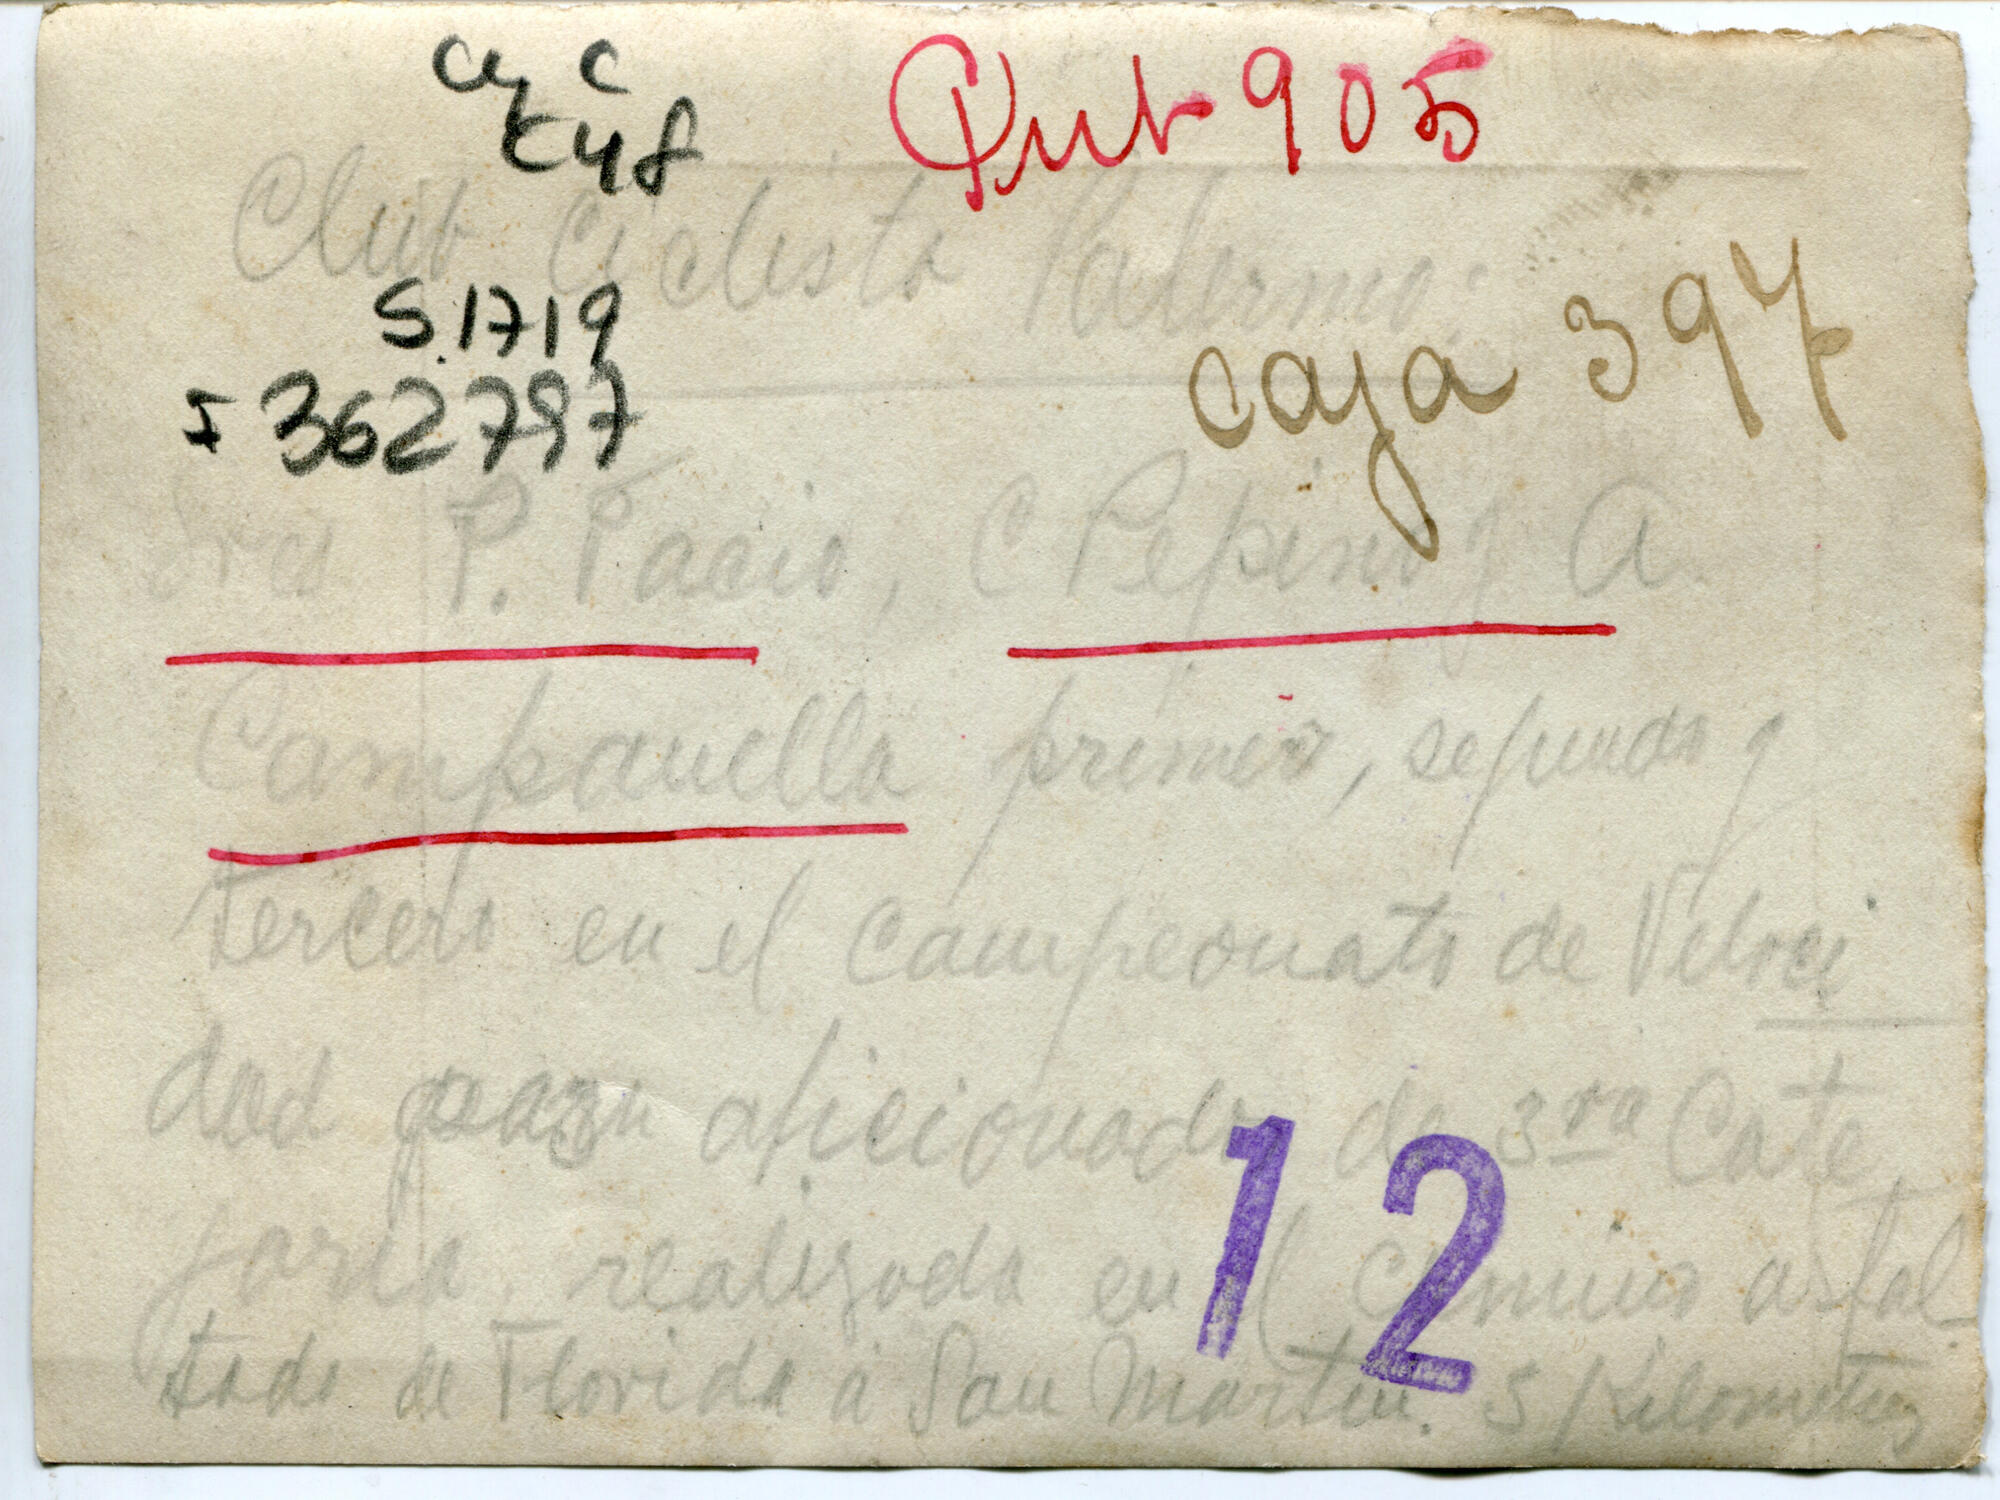 Pub 905
Club Ciclista Palermo:
S.1719
caja 397
I 362797
P. Facio, C Pepino y A.
Campanella primero, segundo y
tercero en el campeonato de Veloci
dad para aficionados de 3ra Cate
goria, realizada en el camino asfal-
tado de Florida a San Martin. 5 Kilometros
12